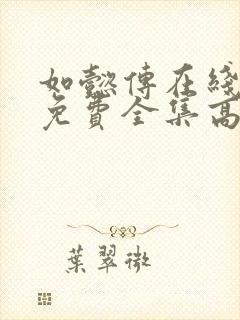 如懿傳在綫
免費全集高
葉翠微